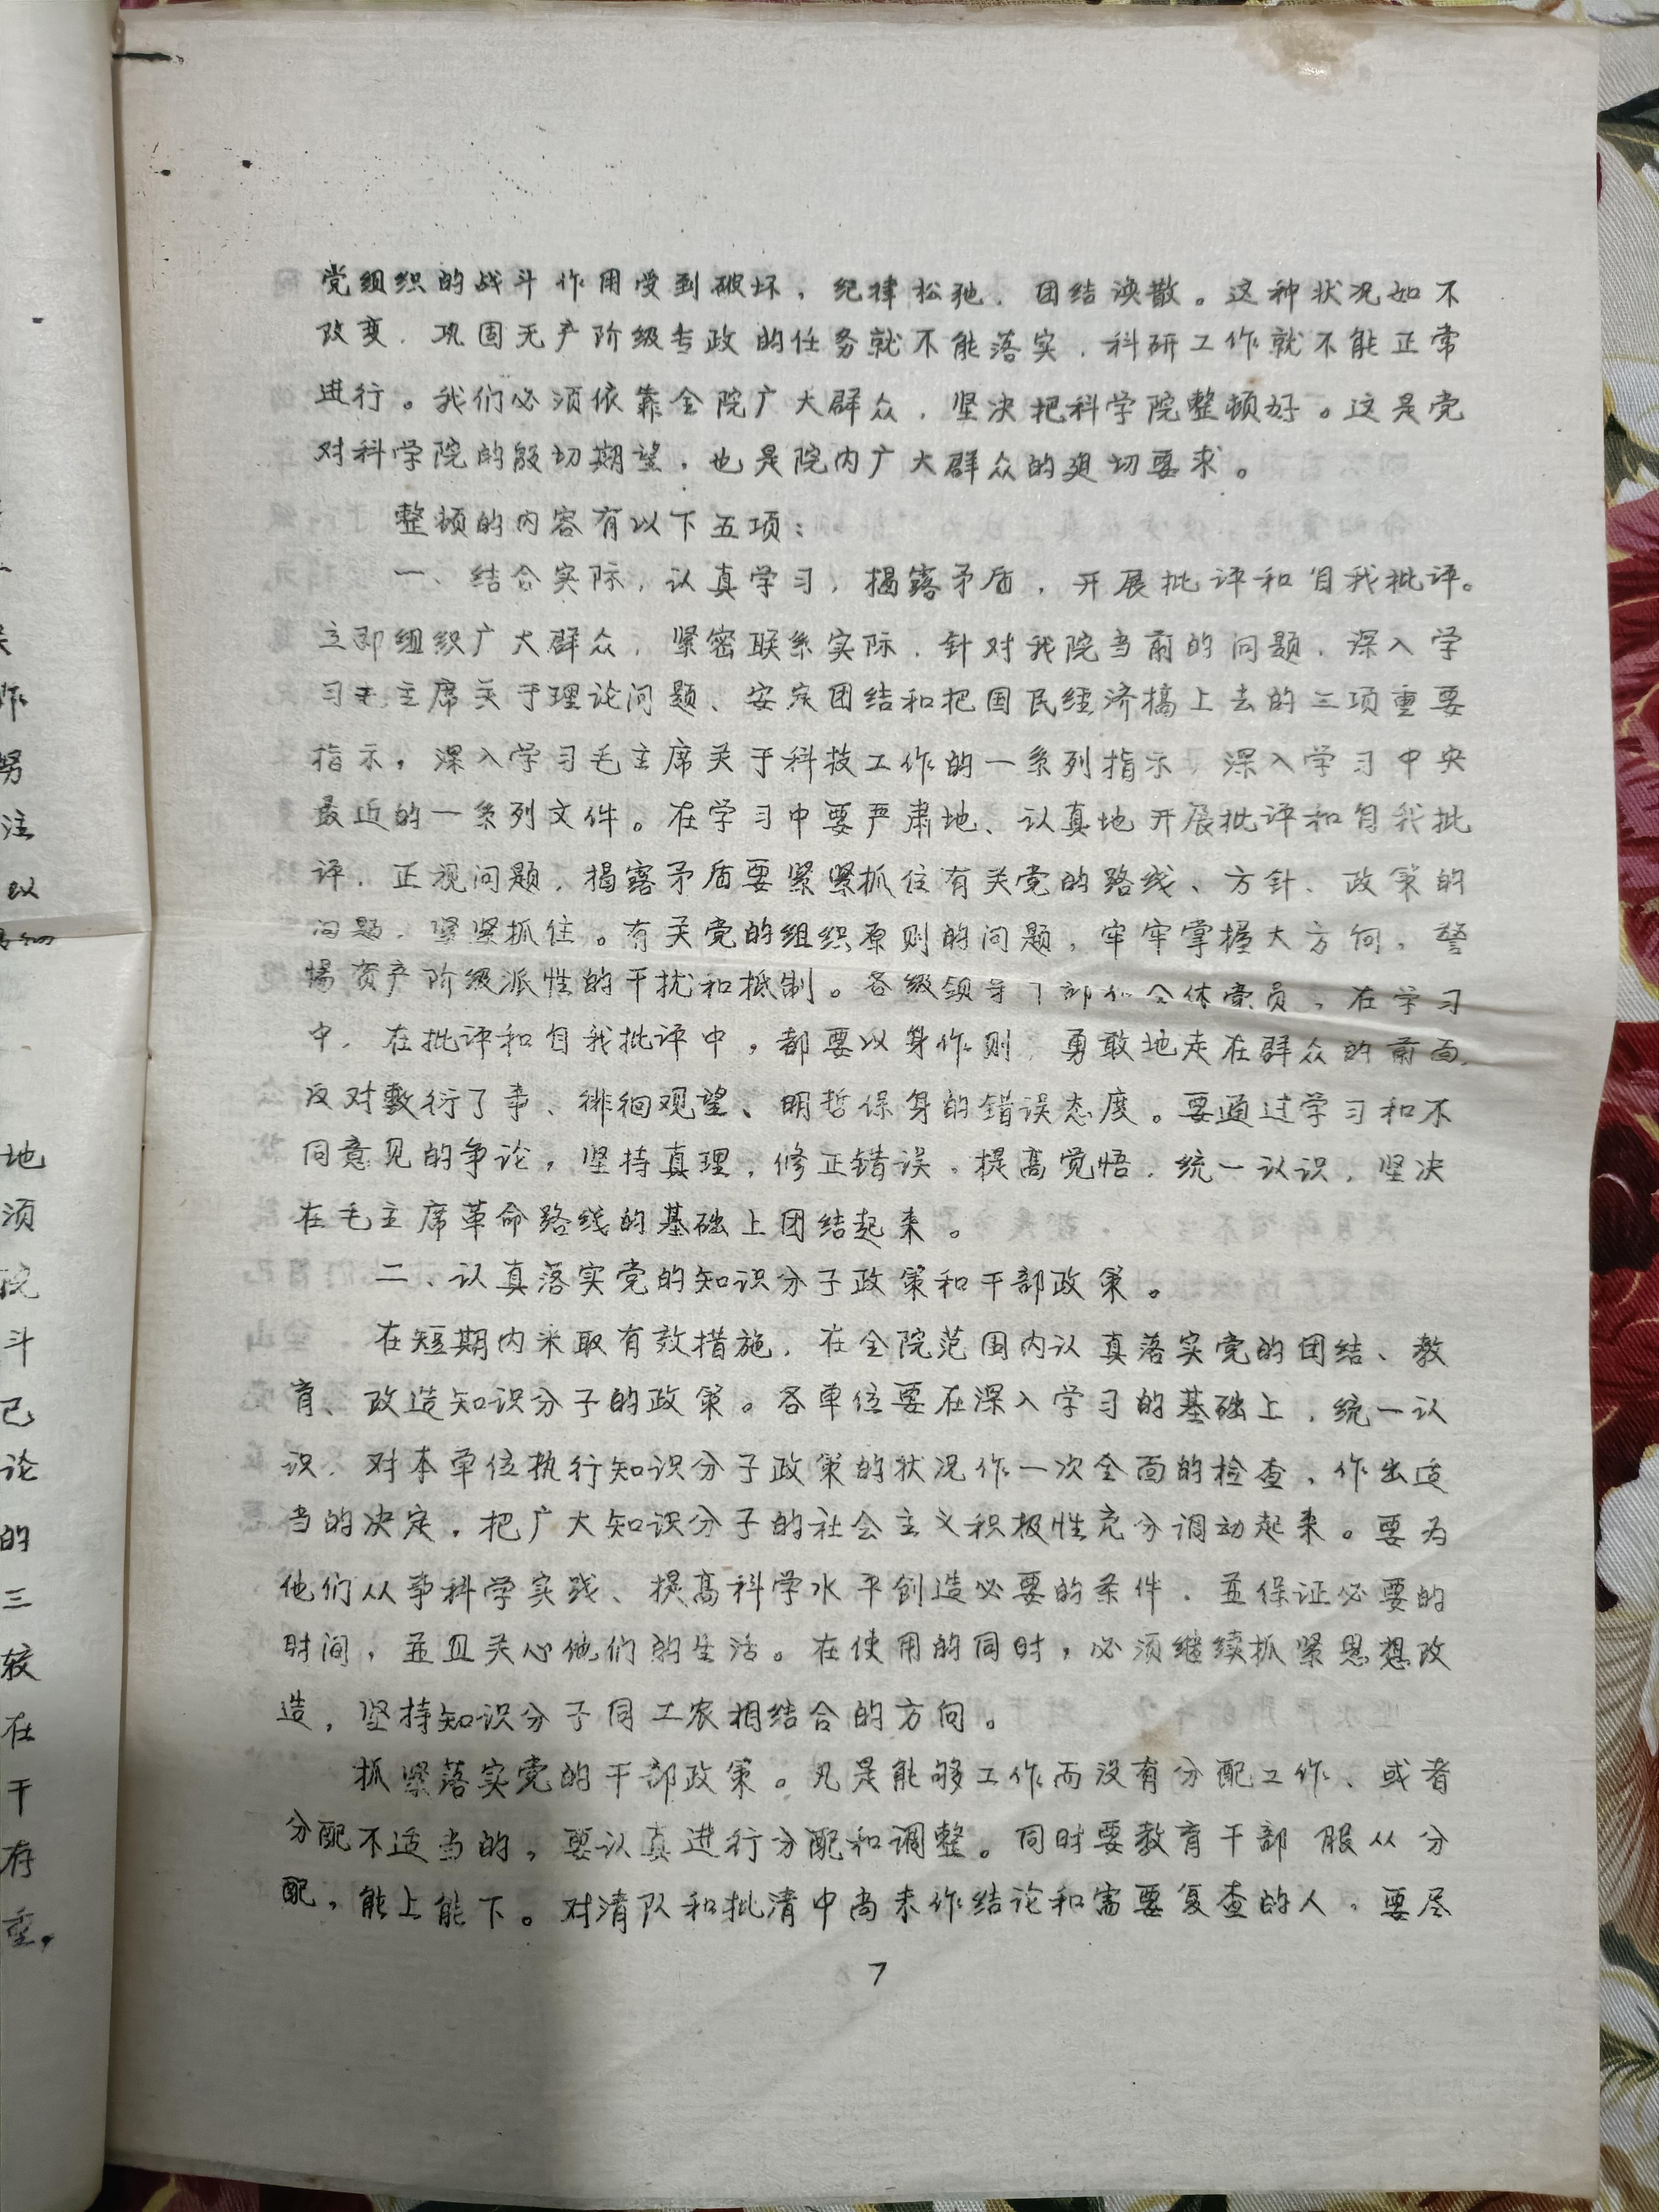 党组织的战斗作用受到破坏，纪律松弛，团结涣散。这种状况如不
改变，巩固无产阶级专政的任务就不能落实，科研工作就不能正常
进行。我们必须依靠全院广大群众，坚决把科学院整顿好。这是党
对科学院的殷切期望，也是院内广大群众的迫切要求。
整顿的内容有以下五项：
一、结合实际，认真学习，揭露矛盾，开展批评和自我批评。
立即组织广大群众，紧密联系实际，针对我院当前的问题，深入学
习毛主席关于理论问题、安定团结和把国民经济搞上去的三项重要
指示，深入学习毛主席关于科技工作的一系列指示，深入学习中央
最近的一系列文件。在学习中要严肃地、认真地开展批评和自我批
评，正视问题，揭露矛盾要紧紧抓住有关党的路线、方针、政策的
问题，紧紧抓住。有关党的组织原则的问题，牢牢掌握大方向，警
惕资产阶级派性的干扰和抵制。各级领导干部和全体党员，在学习
中，在批评和自我批评中，都要以身作则，勇敢地走在群众的前面，
反对敷衍了事、徘徊观望、明哲保身的错误态度。要通过学习和不
同意见的争论，坚持真理，修正错误，提高觉悟，统一认识，坚决
在毛主席革命路线的基础上团结起来。
二、认真落实党的知识分子政策和干部政策。
在短期内采取有效措施，在全院范围内认真落实党的团结、教
育、改造知识分子的政策。各单位要在深入学习的基础上，统一认
识，对本单位执行知识分子政策的状况作一次全面的检查，作出适
当的决定，把广大知识分子的社会主义积极性充分调动起来。要为
他们从事科学实践、提高科学水平创造必要的条件，并保证必要的
时间，并且关心他们的生活。在使用的同时，必须继续抓紧思想改
造，坚持知识分子同工农相结合的方向。
抓紧落实党的干部政策。凡是能够工作而没有分配工作、或者
分配不适当的，要认真进行分配和调整。同时要教育干部服从分
配，能上能下。对清队和批清中尚未作结论和需要复查的人，要尽
7